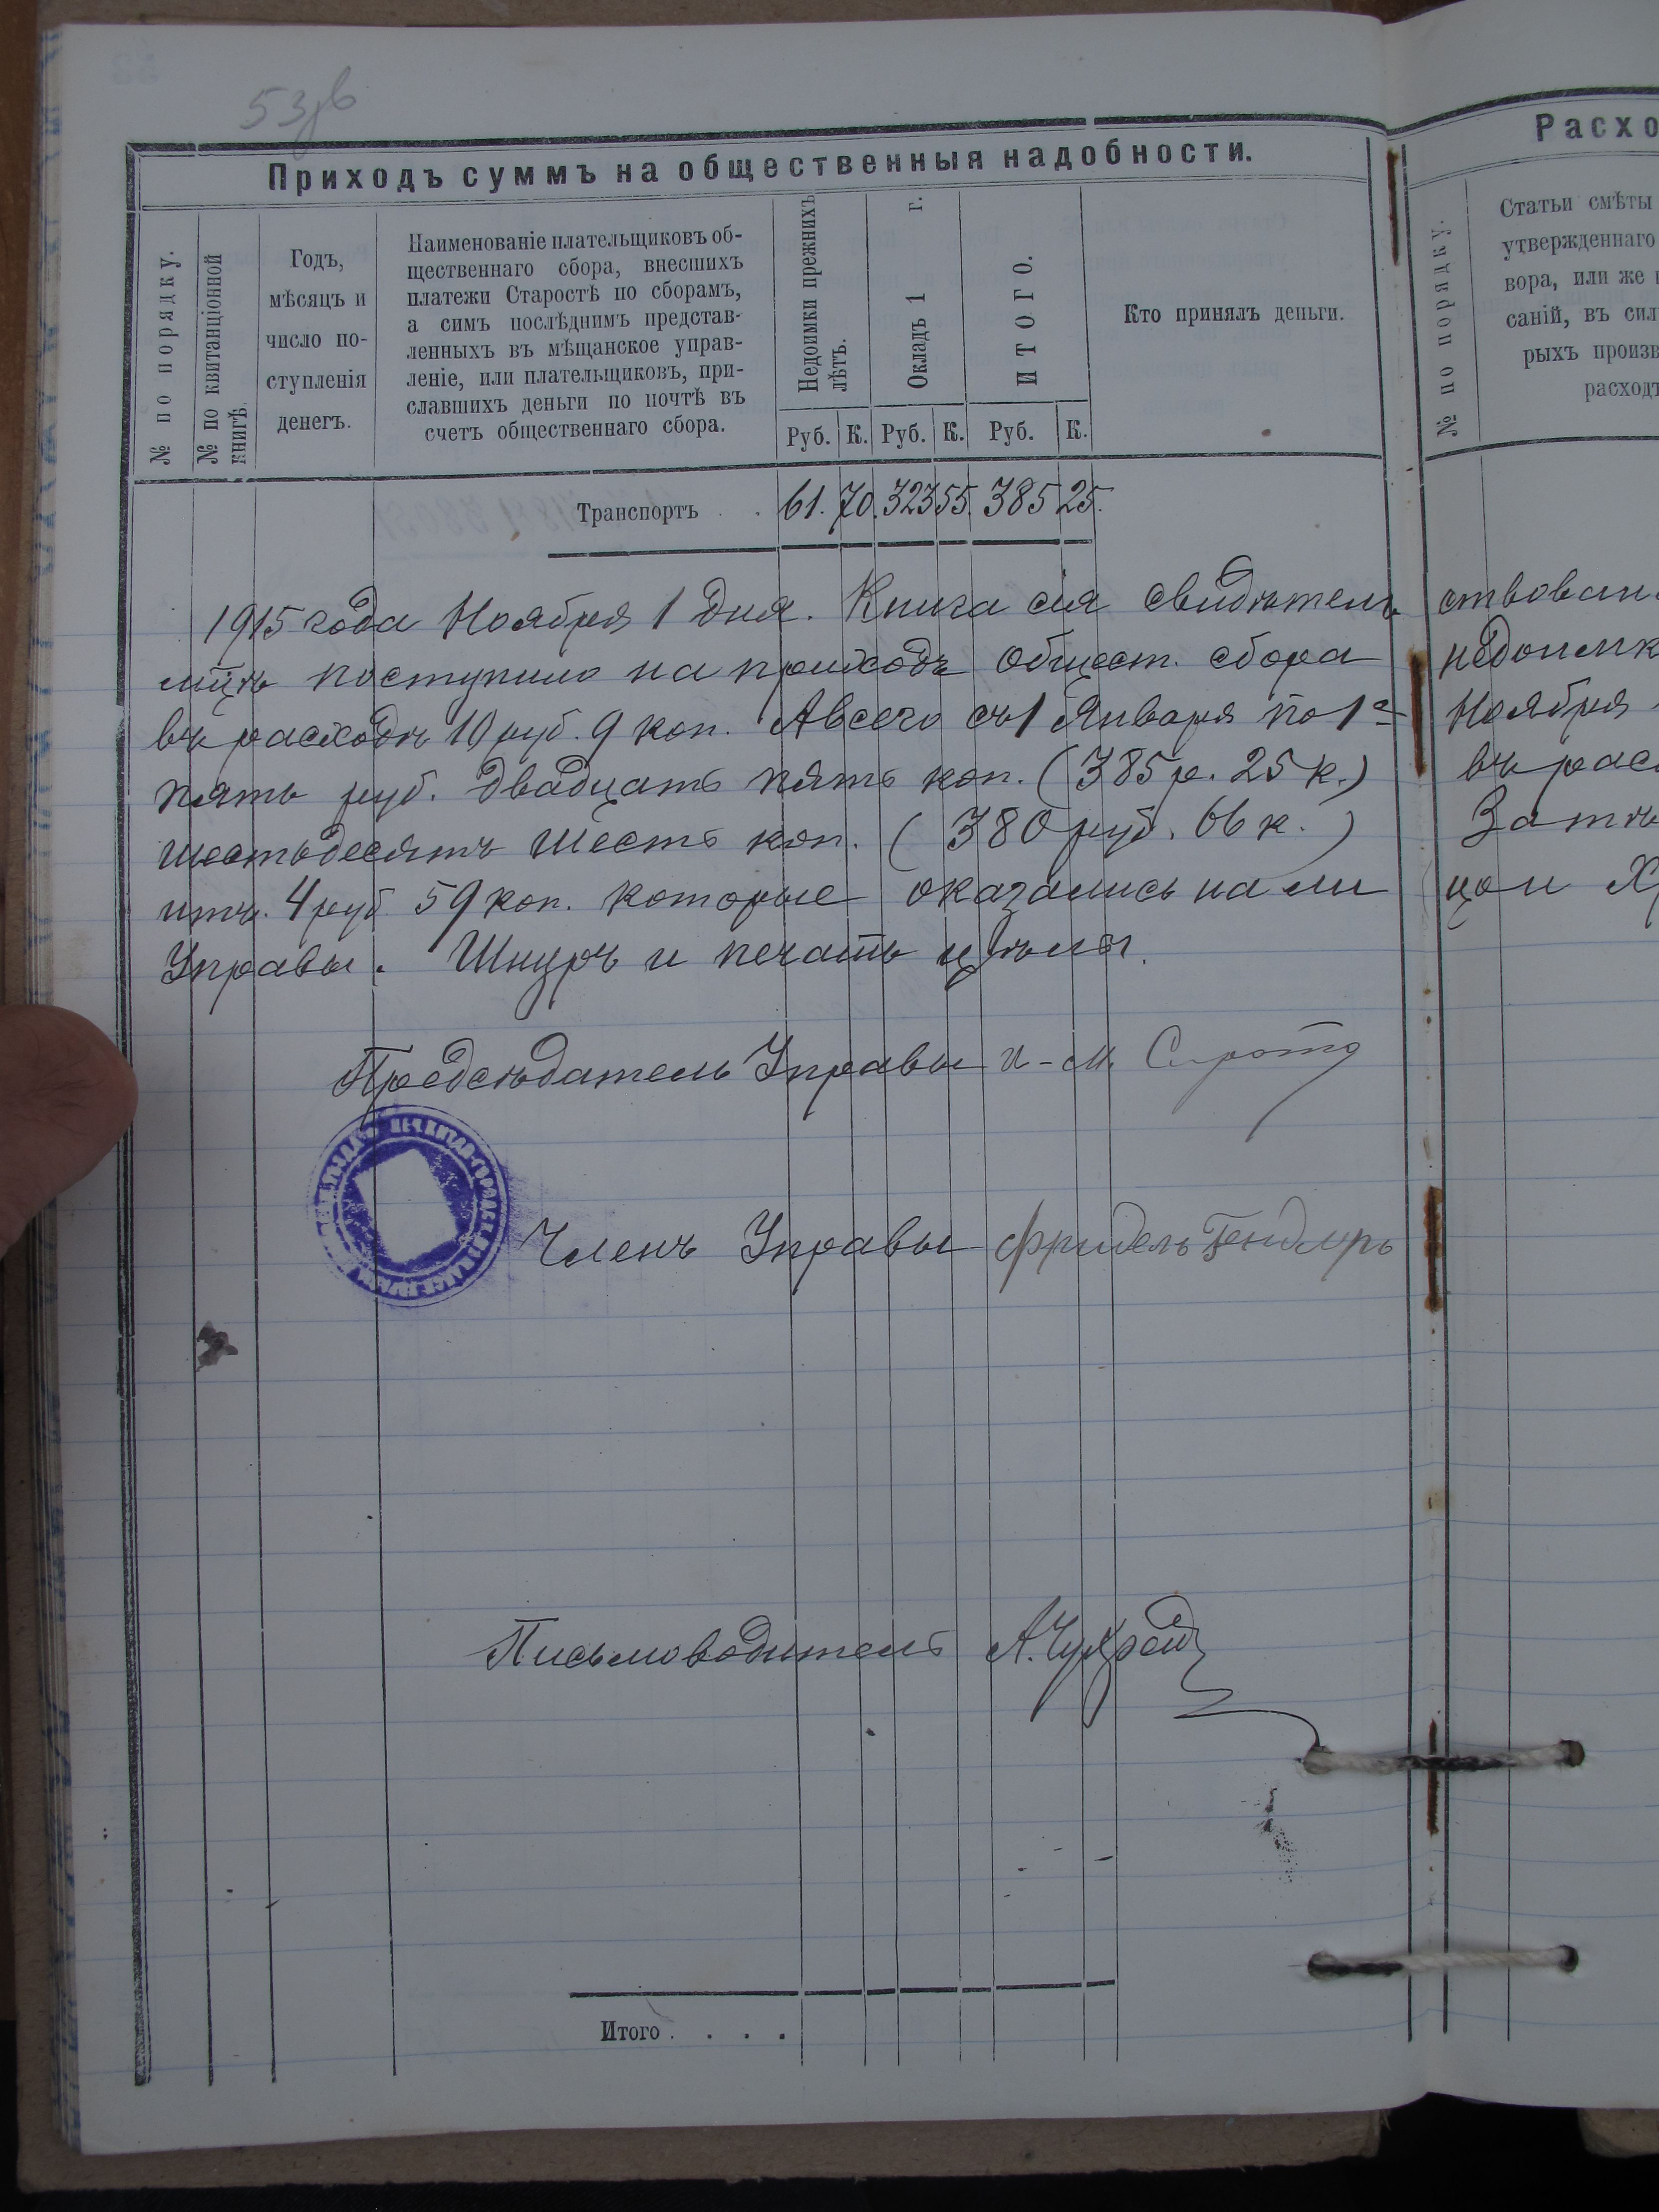 53об
Приходъ суммъ на общественныя надобности.
№ по порядку.
№ по квитанціонной
книгѣ.
Годъ,
мѣсяцъ и
число по-
ступленія
денегъ.
Наименованіе плательщиковъ об-
щественнаго сбора, внесшихъ
платежи Старостѣ по сборамъ,
а симъ послѣднимъ представ-
ленныхъ въ мѣщанское управ-
леніе, или плательщиковъ, при-
славшихъ деньги по почтѣ въ
счетъ общественнаго сбора.
Недоимки прежнихъ
лѣтъ.
Окладъ 1 г.
ИТОГО.
Кто принялъ деньги.
Руб. К. Руб. К. Руб. К.
Транспортъ . . 61. 70. 323 55. 385 25.
1915 года Ноября 1 дня. Книга сія свидѣтель
поступило на приходъ общест. сбора
въ расходѣ 10 руб. 9 коп. А всего съ 1 Января по 1е
пять руб. двадцать пять коп. (385 р. 25 к.)
шестьдесятъ шесть коп. (380 руб. 66 к.)
4 руб. 59 коп. которые оказались на ли
Управы. Шнуръ и печать цѣлы.
Предсѣдатель Управы
Членъ Управы
Письмоводитель
Итого . . . .
Расхо
№ по порядку.
Статьи смѣты
утвержденнаго
вора, или же
саній, въ сил
рыхъ произв
расход
ствован
недоимк
Ноября
въ рас
Затѣ
цо и Хр